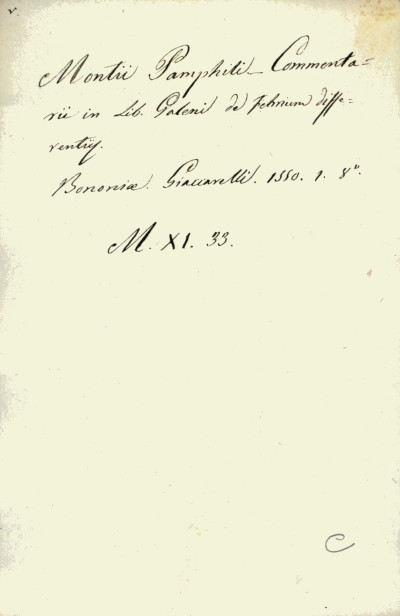 v.
Montii Pamphili_ Commenta=
rii in Lib. Galeni de Febrium diffe=
rentijs.
Bononiæ. Giaccarelli. 1550. 1. 8°.
M. XI. 33.
C